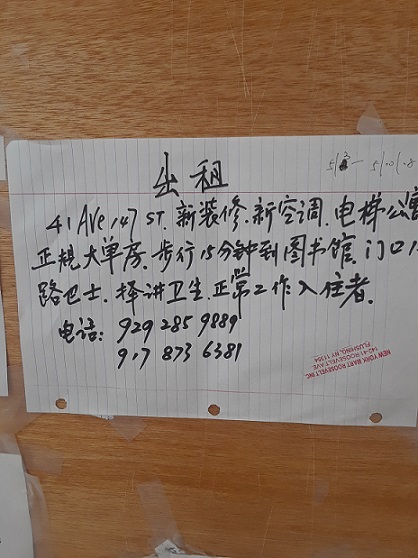 出租
41 AVe, 147 ST. 新装修. 新空调. 电梯公寓
正規大单房. 步行15分钟到图书馆. 门口
路巴士. 择讲卫生. 正常工作入住者.
电话: 929 285 9889
917 873 6381
NEW YORK MART ROOSEVELT INC
142-41 ROOSEVELT AVE
FLUSHING, NY 11354